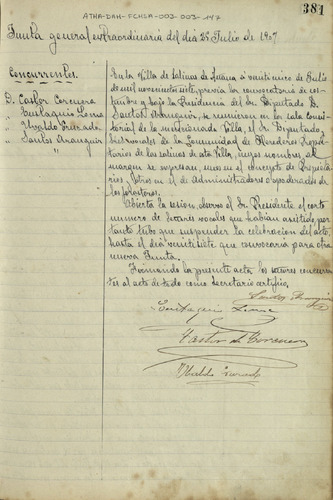 ATHA-DAH-FCHSA-003-003-147
381
Junta general extraordinaria del día 25 Julio de 1907
Concurrentes.
D. Castor Corcuera
" Eustaquio
" Ubaldo
" Santos Aranguiz
"
En la Villa de Salinas de Añana á veinticinco de Julio
de mil novecientos siete, previa la convocatoria de cos-
tumbre y bajo la Presidencia del Sr. Diputado D.
Santos Aranguiz, se reunieron en la sala consis-
torial de la mencionada Villa, el Sr. Diputado,
y los vocales de la Comunidad de Herederos Propie-
tarios de las salinas de esta Villa, cuyos nombres al
margen se expresan, unos en el concepto de Propieta-
rios, y otros en el de administradores ó apoderados de
los forasteros.
Abierta la sesión, observó el Sr. Presidente el corto
numero de Señores vocales que habían asistido, por
tanto tubo que suspender la celebración del acto,
hasta el día veintisiete que convocaría para una
nueva Junta.
Firmando la presente acta los señores concurren-
tes al acto de todo como Secretario certifico,
Santos Aranguiz
Castor de Corcuera
Ubaldo